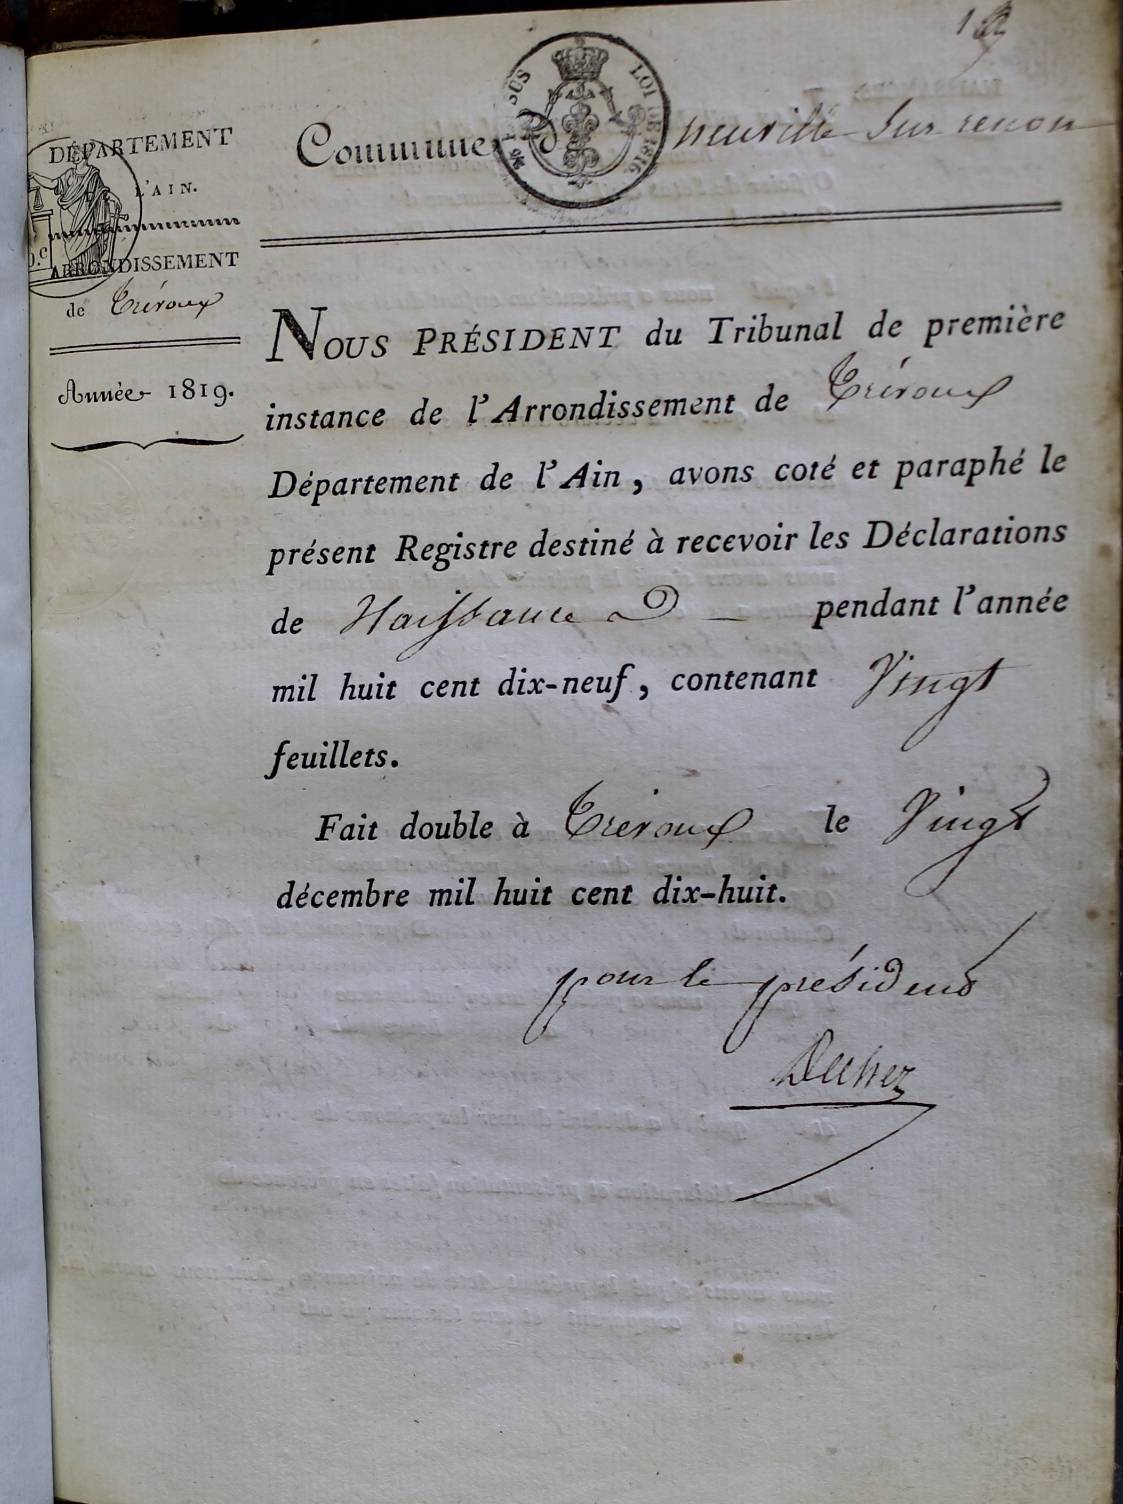 1
DÉPARTEMENT
L'AIN.
ARRONDISSEMENT
de Trévoux
Année 1819.
LOI DE 1816.
Commune de neuville Sur renon
NOUS PRÉSIDENT du Tribunal de première
instance de l'Arrondissement de Trévoux
Département de l'Ain, avons coté et paraphé le
présent Registre destiné à recevoir les Déclarations
de Naissance pendant l'année
mil huit cent dix-neuf, contenant Vingt
feuillets.
Fait double à Trévoux le Vingt
décembre mil huit cent dix-huit.
pour le président